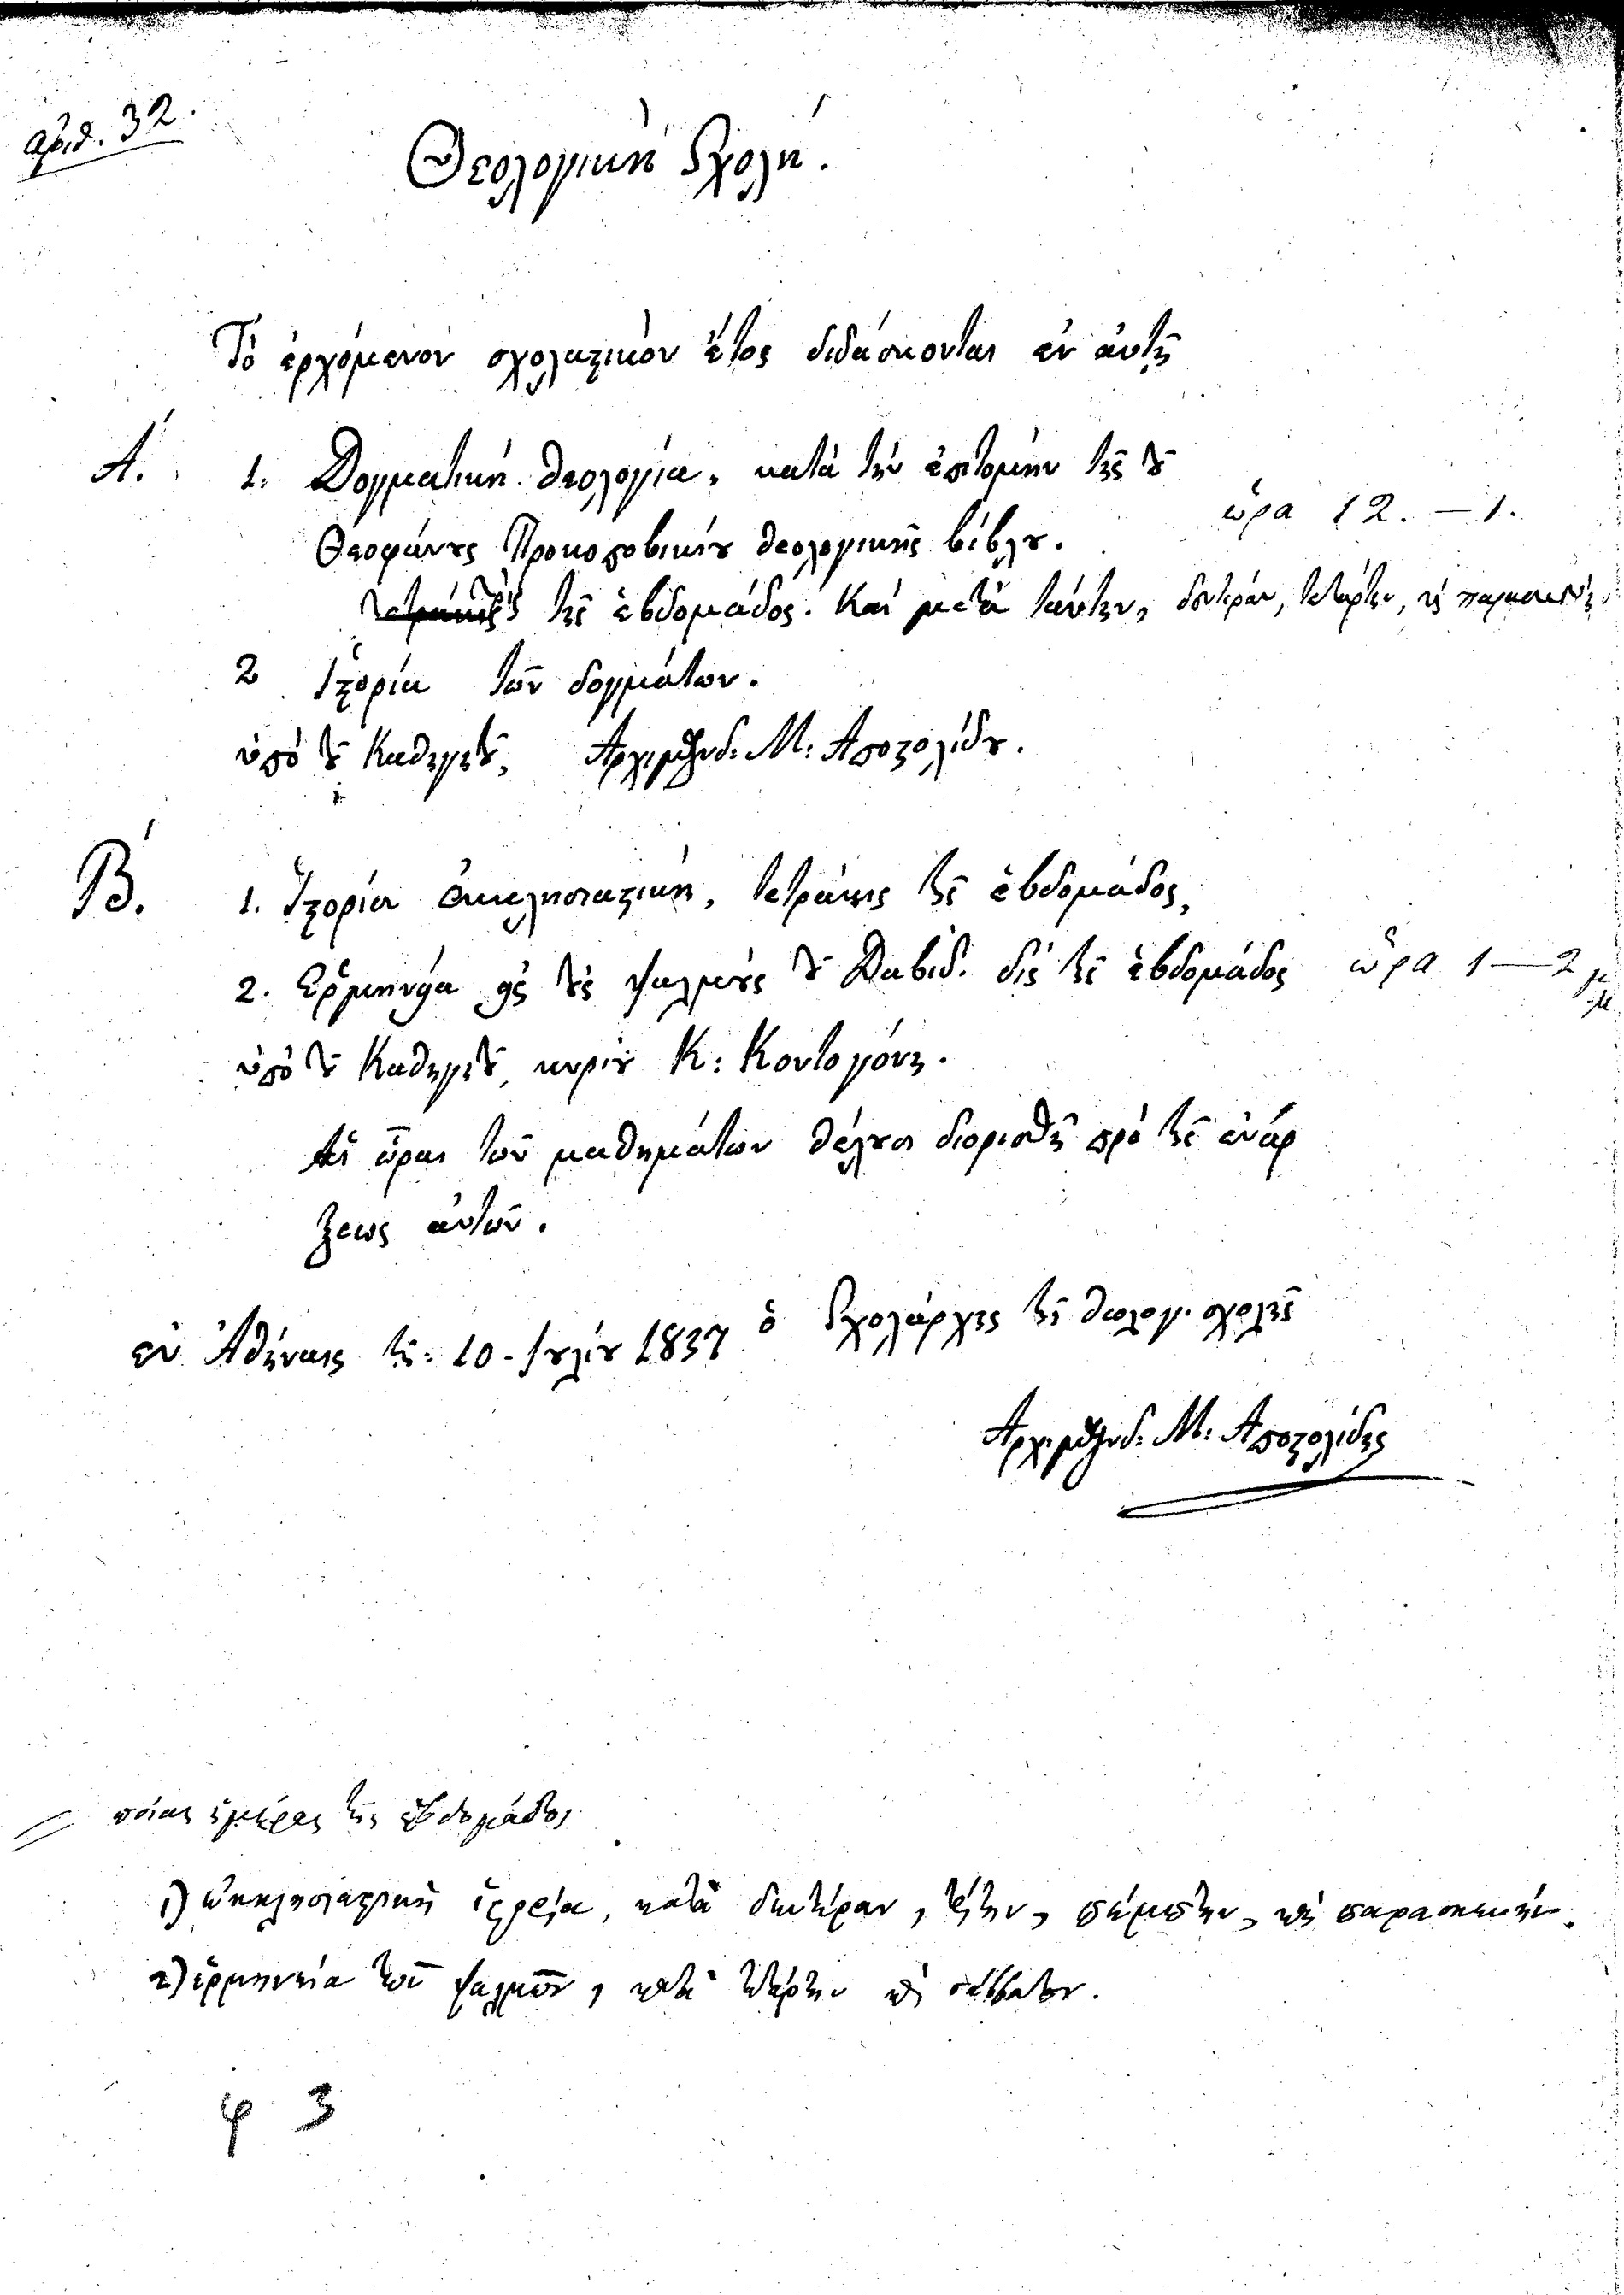 αριθ. 32.
Θεολογική Σχολή.
Τό ἐρχόμενον σχολαϛικόν ἔτος διδάσκονται ἐν ἀυτῇ
Α΄. 1. Δογματική θεολογία, κατά τήν ἐπιτομήν τῆς τȣ͂
Θεοφάνȣς Προκοποβικίȣ θεολογικῆς βίβλȣ. ὥρα 12. — 1.
τῆς ἑβδομάδος. Καί μετά ταύτην, δευτέραν, τετάρτην, ϗ παρασκευήν,
2 Ἱϛορία τῶν δογμάτων.
ὑπό τȣ͂ Καθηγητȣ͂, Ἀρχιμανδ: Μ: Αποϛολίδȣ.
Β΄. 1. Ἱϛορία ἐκκλησιαϛική, τετράκις τῆς ἑβδομάδος,
2. Ἑρμηνεία εἰς τȣ́ς ψαλμȣ́ς τȣ͂ Δαβίδ. δίς τῆς ἑβδομάδος ὥρα 1 — 2 μ μ
ὑπό τȣ͂ Καθηγητȣ͂, κυρίȣ Κ: Κοντογόνη.
Αἱ ὧραι τῶν μαθημάτων θέλȣσι διορισθῆ πρό τῆς ἐνάρ
ξεως ἀυτῶν.
ἐν Ἀθήναις τῇ: 10 - Ιȣλίȣ 1837 ὁ Σχολάρχης τῆς θεολογ. σχολῆς
Ἀρχιμανδ: Μ: Αποϛολίδης
ποίας ἡμέρας τῆς ἑβδομάδος
1) ἐκκλησιαϛική ἱϛορία, κατά δευτέραν, τρίτην, πέμπτην, ϗ παρασκευήν.
2) ἑρμηνεία τῶν ψαλμῶν, κατά τετάρτην ϗ σάββατον.
φ 3